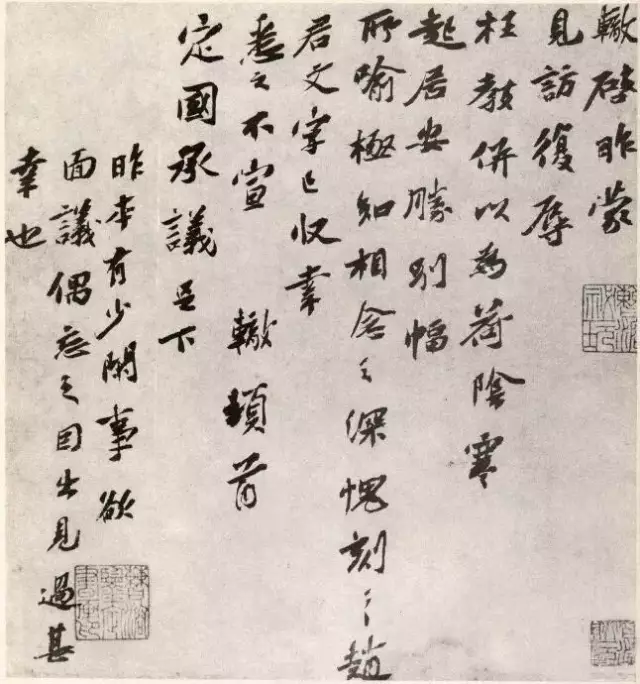 轍啓昨蒙
見訪復辱
枉教併以為荷陰寒
起居安勝別幅
所喻極知相念之深愧刻之趙
君文字已收幸
悉之不宣 轍頓首
定國承議足下
昨本有少閑事欲
面議偶忘之因出見過甚
幸也